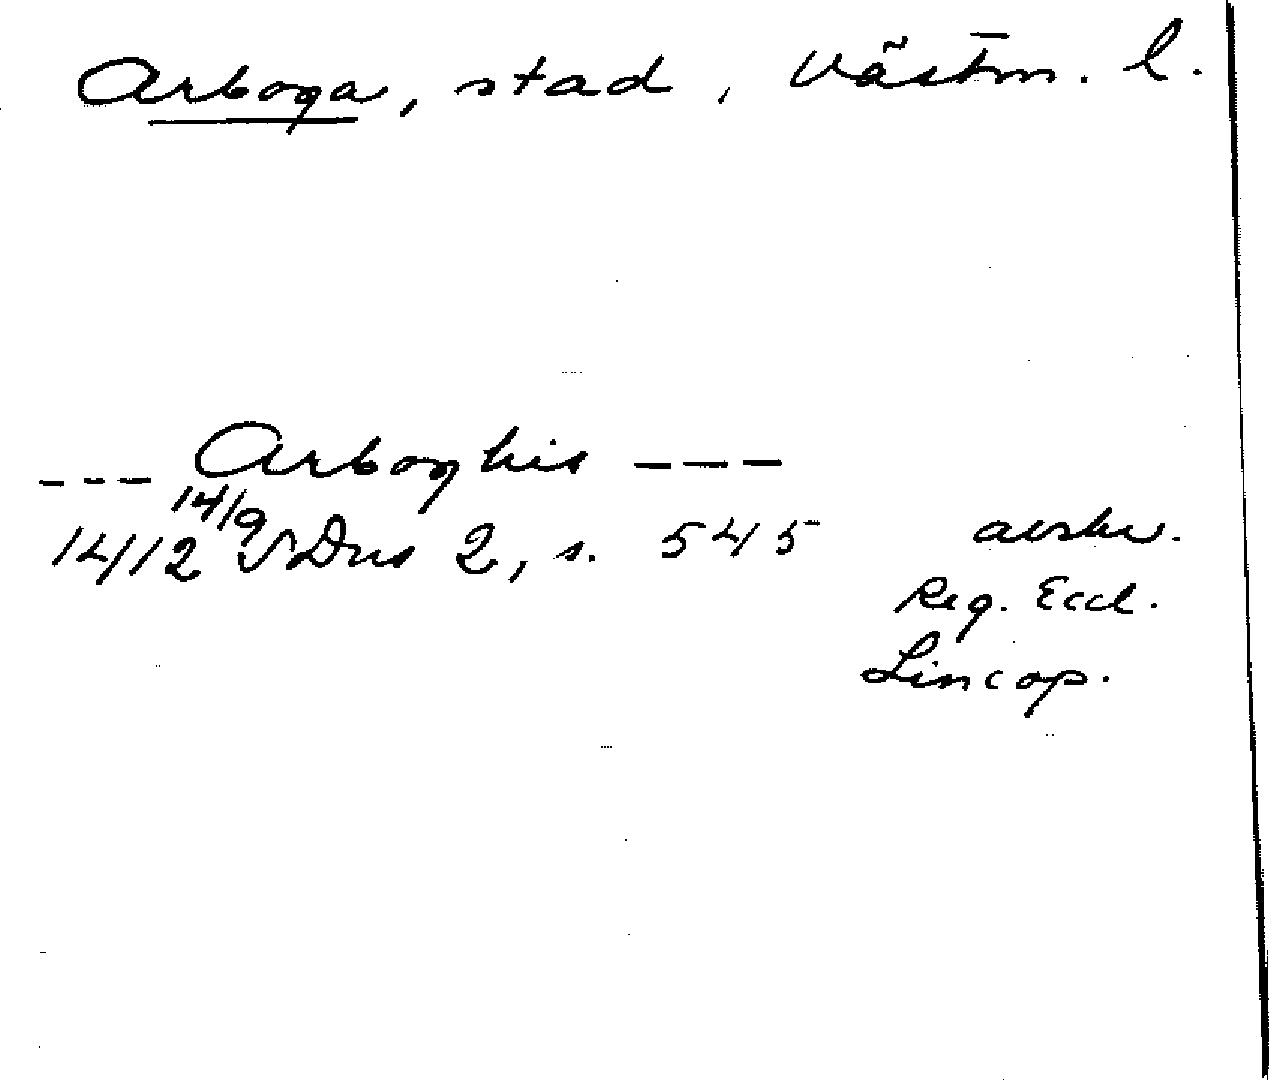 Arboga, stad, Västm. l.
--- Arboghis ---
1412 14/9 SDns 2, s. 545 avskr.
Reg. Eccl.
Lincop.